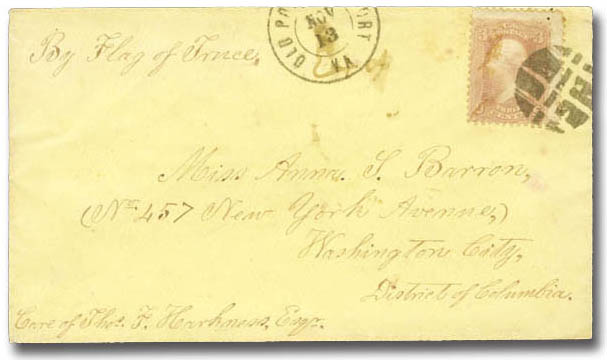 OLD PO RT
NOV
13
VA.
By Flag of Truce.
3 3
POSTAGE
CENTS
Miss Anna. S. Barron,
(No. 457 New York Avenue,)
Washington City,
District of Columbia.
Care of Thos. F. Harkness, Esqr.